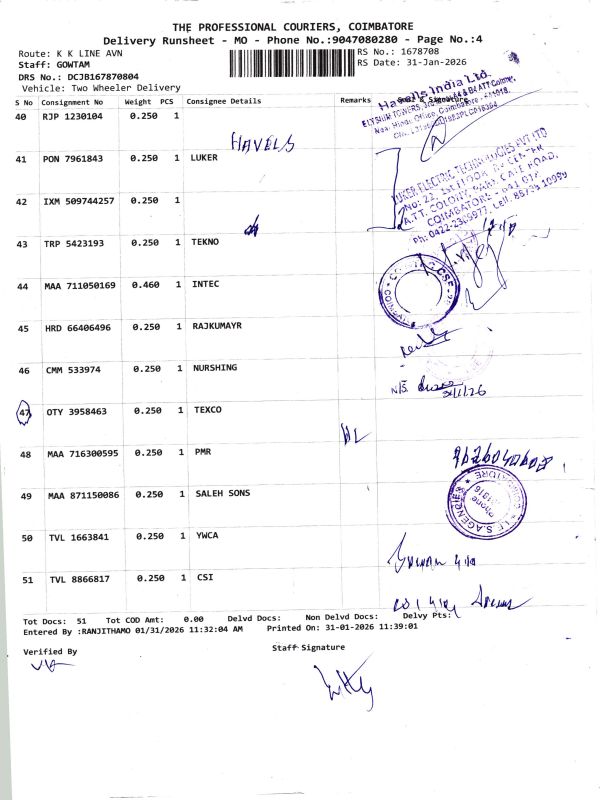 THE PROFESSIONAL COURIERS, COIMBATORE
Delivery Runsheet - MO - Phone No.:9047080280 - Page No.:4
Route: K K LINE AVN
RS No.: 1678708
Staff: GOWTAM
RS Date: 31-Jan-2026
DRS No.: DCJB167870804
Vehicle: Two Wheeler Delivery
S No Consignment No Weight PCS Consignee Details Remarks Seal & Signature
Havells India Ltd.
40 RJP 1230104 0.250 1
HAVELS
41 PON 7961843 0.250 1 LUKER
LUKER ELECTRIC TECHNOLOGIES PVT LTD
42 IXM 509744257 0.250 1
A.T.T. COLONY, PARK GATE ROAD,
COIMBATORE - 641 018.
43 TRP 5423193 0.250 1 TEKNO
44 MAA 711050169 0.460 1 INTEC
45 HRD 66406496 0.250 1 RAJKUMAYR
46 CMM 533974 0.250 1 NURSHING
31/1/26
47 OTY 3958463 0.250 1 TEXCO
48 MAA 716300595 0.250 1 PMR
49 MAA 871150086 0.250 1 SALEH SONS
50 TVL 1663841 0.250 1 YWCA
51 TVL 8866817 0.250 1 CSI
Tot Docs: 51 Tot COD Amt: 0.00 Delvd Docs: Non Delvd Docs: Delvy Pts:
Entered By :RANJITHAMO 01/31/2026 11:32:04 AM Printed On: 31-01-2026 11:39:01
Verified By
Staff Signature